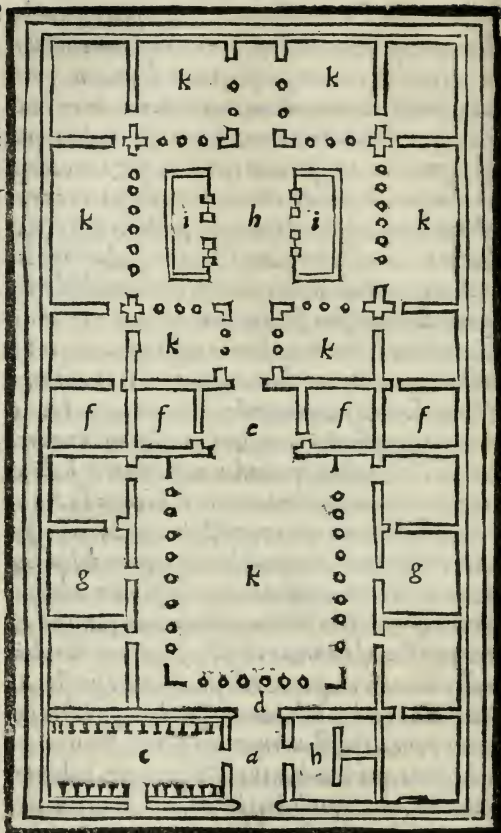 k k
k i h i k
k k
f f e f f
g k g
d
c a h